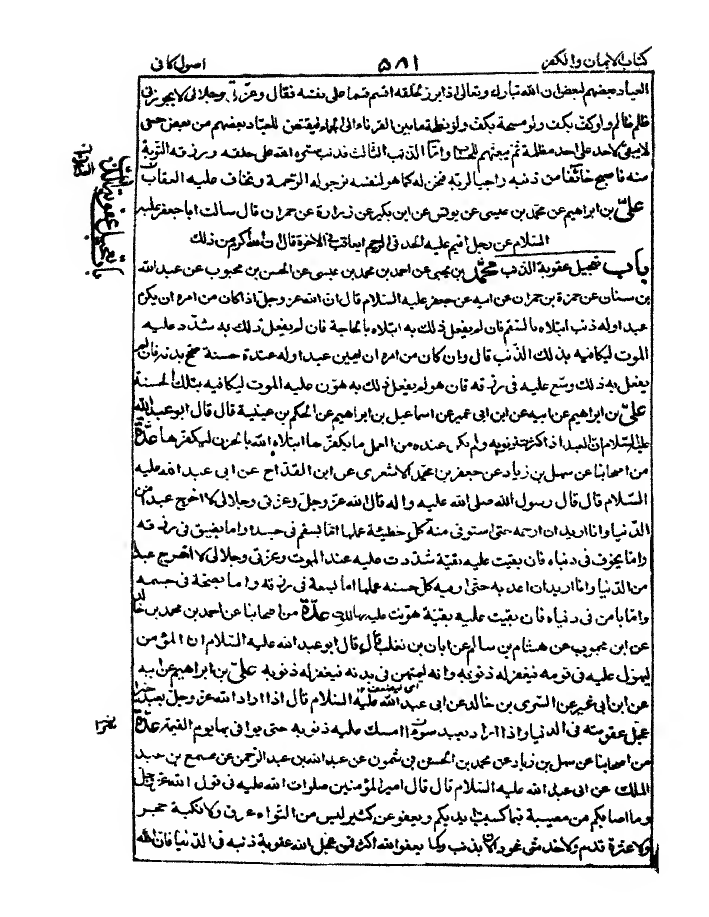 كتاب الايمان والكفر ٥٨١ اصول كافى
العباد بعضهم لبعض ان الله تبارك وتعالى اذا برز لخلقه اقسم قسما على نفسه فقال وعزّتى وجلالى لا يجوزنى
ظلم ظالم ولو كف بكف ولو مسحة بكف ولو نطحة ما بين القرناء الى الجماء فيقتص للعباد بعضهم من بعض حتى
لا يبقى لاحد على احد مظلمة ثم يبعثهم للحساب وامّا الذنب الثالث فذنب ستره الله على خلقه ورزقه التوبة
منه فاصبح خائفا من ذنبه راجيا لربّه فنحن له كما هو لنفسه نرجو له الرحمة ونخاف عليه العقاب
علىّ بن ابراهيم عن محمد بن عيسى عن يونس عن ابن بكير عن زرارة عن حمران قال سالت ابا جعفر عليه
السّلام عن رجل اقيم عليه الحد فى الرجم ايعاقب فى الاخرة قال ان الله اكرم من ذلك
باب تعجيل عقوبة الذنب محمّد بن يحيى عن احمد بن محمد بن عيسى عن الحسن بن محبوب عن عبد الله
بن سنان عن حمزة بن حمران عن ابيه عن جعفر عليه السّلام قال ان الله عز وجل اذا كان من امره ان يكرم
عبدا وله ذنب ابتلاه بالسقم فان لم يفعل ذلك به ابتلاه بالحاجة فان لم يفعل ذلك به شدّد عليه
الموت ليكافيه بذلك الذنب قال وان كان من امره ان يهين عبدا وله عنده حسنة صحّح بدنه فان لم
يفعل به ذلك وسّع عليه فى رزقه فان هو لم يفعل ذلك به هوّن عليه الموت ليكافيه بتلك الحسنة
علىّ بن ابراهيم عن ابيه عن ابن ابى عمير عن اسماعيل بن ابراهيم عن الحكم بن عيينة قال قال ابو عبد الله
عليه السلام ان العبد اذا كثرت ذنوبه ولم يكن عنده من العمل ما يكفّرها ابتلاه الله بالحزن ليكفّرها عدّة
من اصحابنا عن سهل بن زياد عن جعفر بن محمّد الاشعرى عن ابن القداح عن ابى عبد الله عليه
السّلام قال قال رسول الله صلى الله عليه واله قال الله عز وجل وعزتى وجلالى لا اخرج عبدا من
الدّنيا وانا اريد ان ارحمه حتى استوفى منه كل خطيئة عملها امّا بسقم فى جسده واما بضيق فى رزقه
واما بخوف فى دنياه فان بقيت عليه بقيّة شدّدت عليه عند الموت وعزتى وجلالى لا اخرج عبدا
من الدّنيا وانا اريد ان اعذبه حتى اوفيه كل حسنة عملها اما بسعة فى رزقه واما بصحة فى جسمه
وامّا بامن فى دنياه فان بقيت عليه بقيّة هوّنت عليه بها الموت عدّة من اصحابنا عن احمد بن محمد بن خالد
عن ابن محبوب عن هشام بن سالم عن ابان بن تغلب قال قال ابو عبد الله عليه السّلام ان المؤمن
ليهوّل عليه فى نومه فيغفر له ذنوبه وانه ليمتهن فى بدنه فيغفر له ذنوبه علىّ بن ابراهيم عن ابيه
عن ابن ابى عمير عن السرى بن خالد عن ابى عبد الله عليه السلام قال اذا اراد الله عز وجل بعبد خيرا
عجل عقوبته فى الدنيا واذا اراد بعبد سوءا امسك عليه ذنوبه حتى يوافى بها يوم القيمة عدّة
من اصحابنا عن سهل بن زياد عن محمد بن الحسن بن شمون عن عبد الله بن عبد الرحمن عن مسمع بن عبد
الملك عن ابى عبد الله عليه السّلام قال قال امير المؤمنين صلوات الله عليه فى قول الله عز وجل
وما اصابكم من مصيبة فبما كسبت ايديكم ويعفو عن كثير ليس من التواء عرق ولا نكبة حجر
ولا عثرة قدم ولا خدش عود الا بذنب ولما يعفو الله اكثر فمن عجل الله عقوبة ذنبه فى الدّنيا فان الله
باب تعجيل عقوبة الذنب